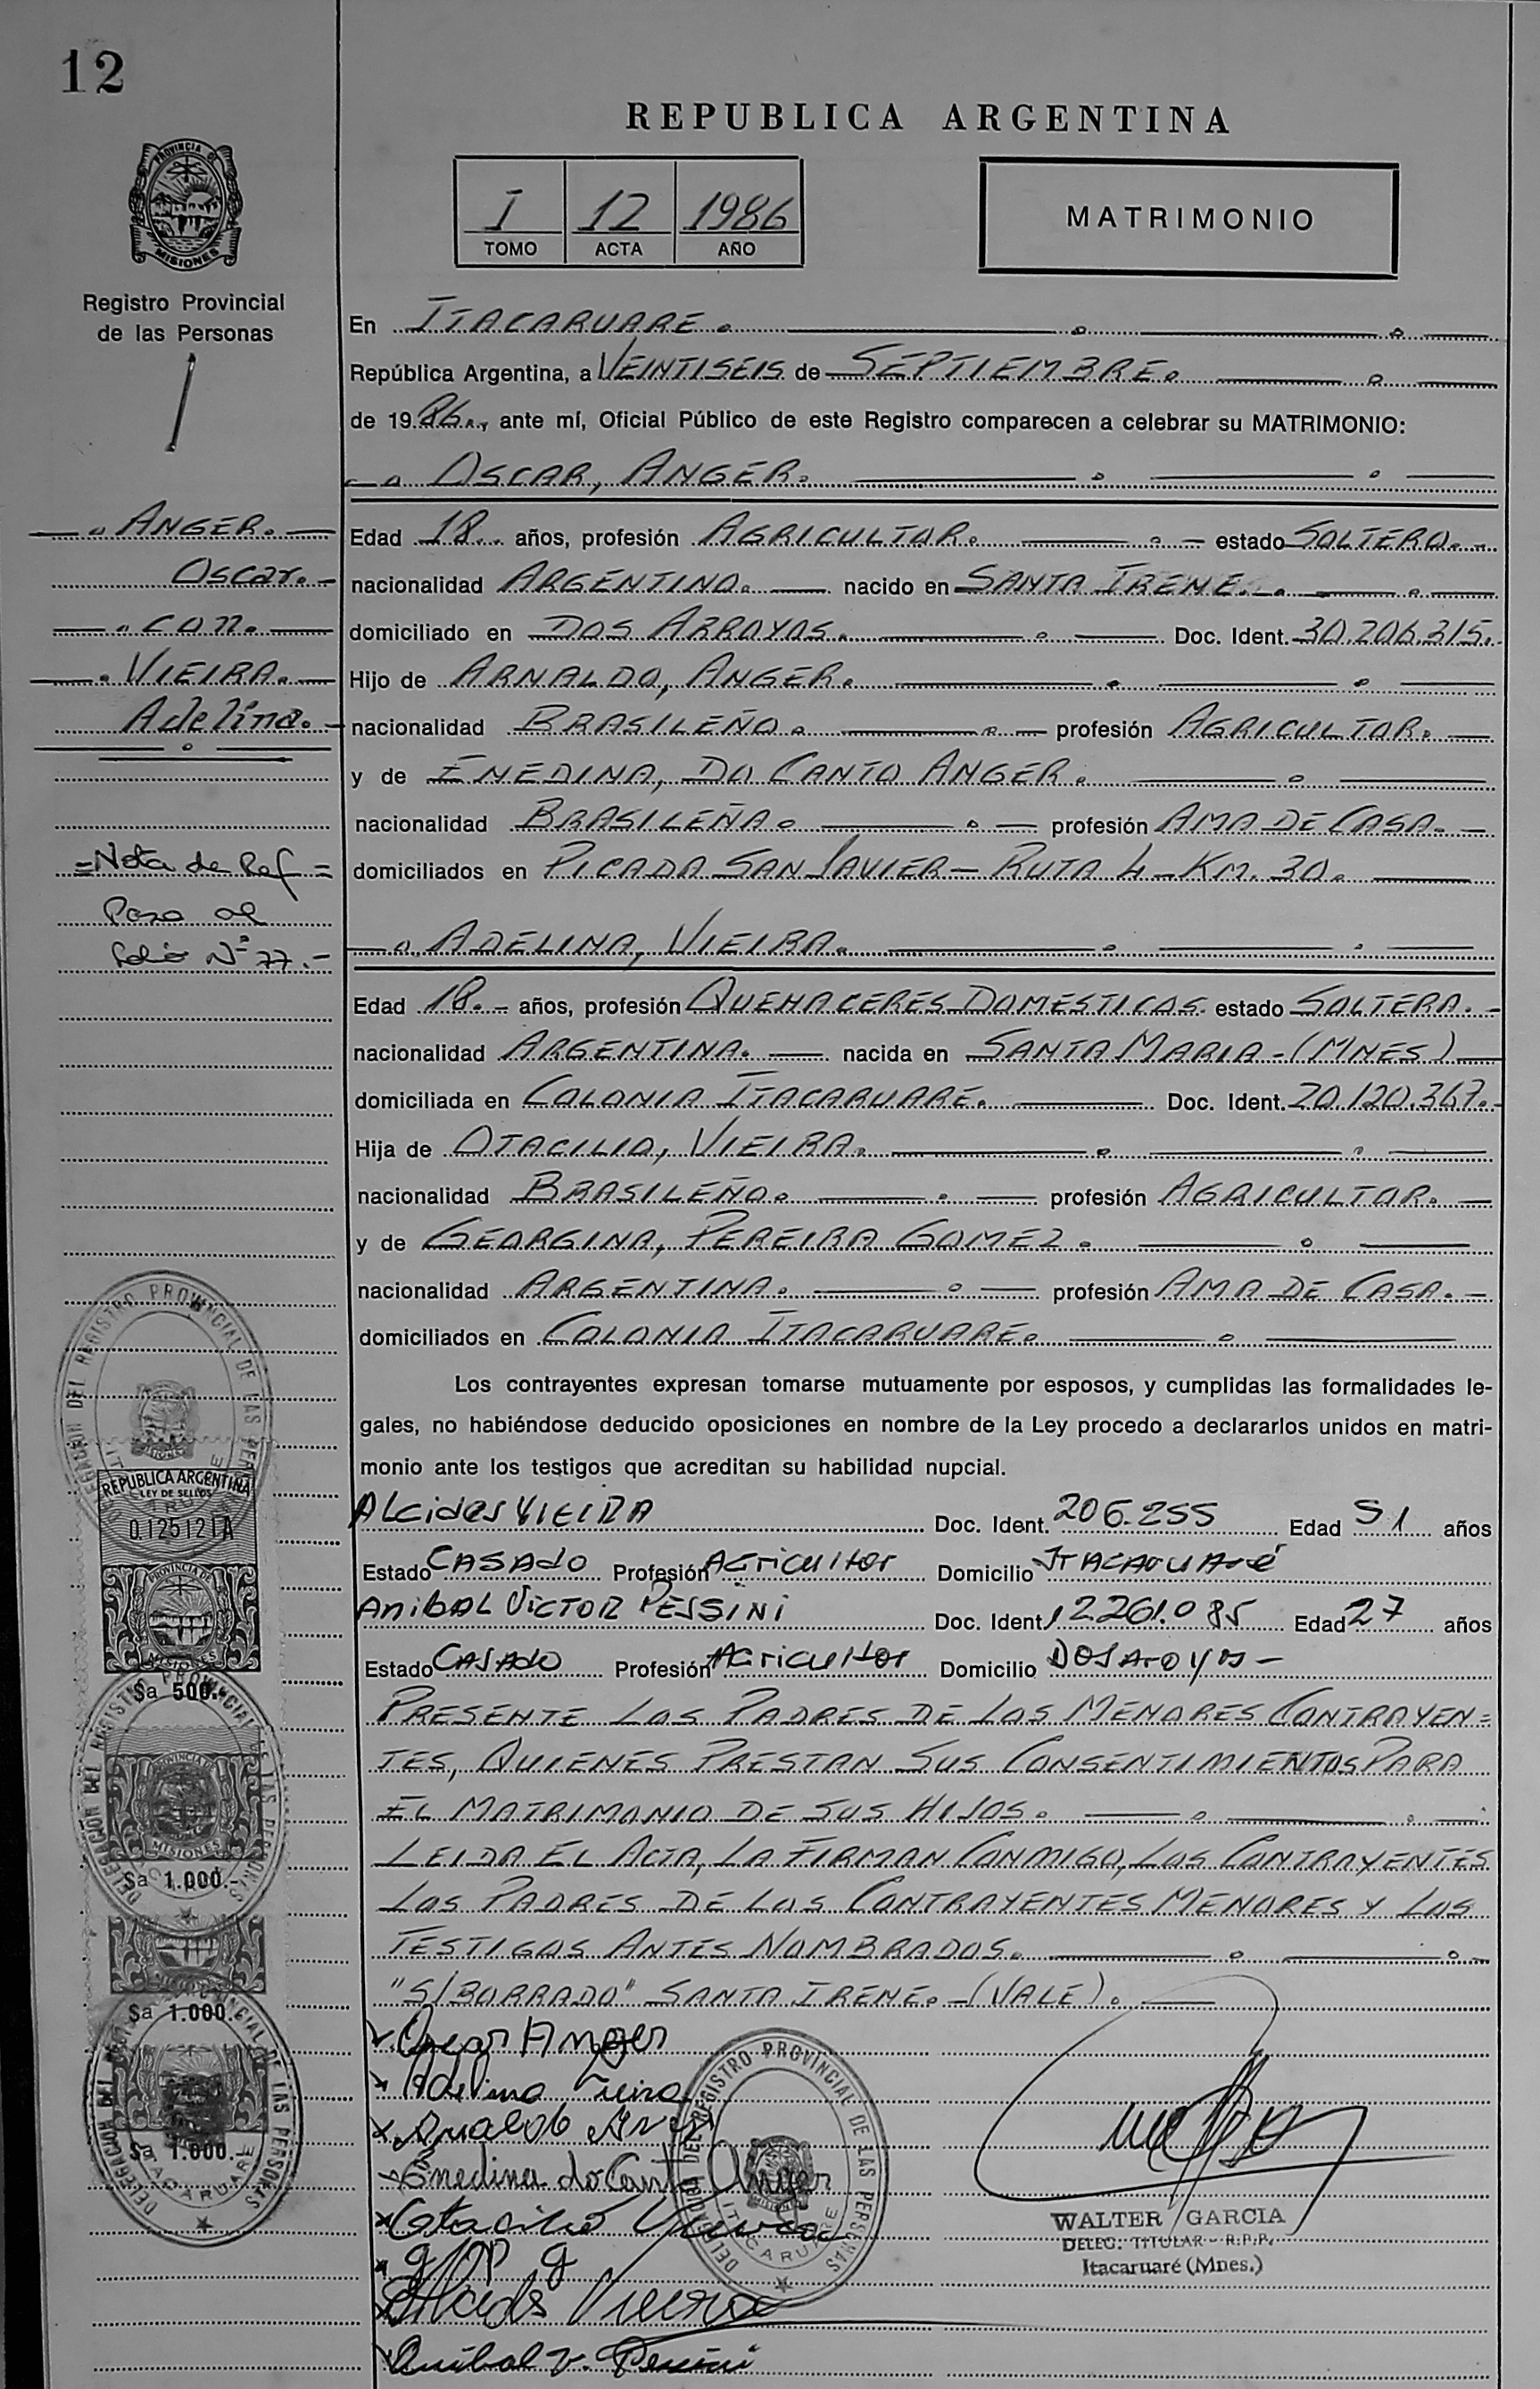 12
REPUBLICA ARGENTINA
I 12 1986
TOMO ACTA AÑO
MATRIMONIO
PROVINCIA DE
MISIONES
Registro Provincial
de las Personas
En ITACARUARE.
República Argentina, a VEINTISEIS de SEPTIEMBRE.
de 1986., ante mí, Oficial Público de este Registro comparecen a celebrar su MATRIMONIO:
OSCAR, ANGER.
ANGER.
Oscar.-
CON.
VIEIRA.
Adelina.-
=Nota de Ref=
Pasa al
folio N° 77.-
Edad 18.. años, profesión AGRICULTOR. estado SOLTERO.-
nacionalidad ARGENTINO. nacido en SANTA IRENE.
domiciliado en DOS ARROYOS. Doc. Ident. 30.206.315.
Hijo de ARNALDO, ANGER.
nacionalidad BRASILEÑO. profesión AGRICULTOR.
y de ENEDINA, DO CANTO ANGER.
nacionalidad BRASILEÑA. profesión AMA DE CASA.
domiciliados en PICADA SAN JAVIER - RUTA 4 - KM. 30.
ADELINA, VIEIRA.
Edad 18.- años, profesión QUEHACERES DOMESTICOS. estado SOLTERA.-
nacionalidad ARGENTINA. nacida en SANTA MARIA - (MNES)
domiciliada en COLONIA ITACARUARE. Doc. Ident. 20.120.367.-
Hija de OTACILIO, VIEIRA.
nacionalidad BRASILEÑO. profesión AGRICULTOR.
y de GEORGINA, PEREIRA GOMEZ.
nacionalidad ARGENTINA. profesión AMA DE CASA.-
domiciliados en COLONIA ITACARUARE.
Los contrayentes expresan tomarse mutuamente por esposos, y cumplidas las formalidades le-
gales, no habiéndose deducido oposiciones en nombre de la Ley procedo a declararlos unidos en matri-
monio ante los testigos que acreditan su habilidad nupcial.
Alcides VIEIRA Doc. Ident. 206.255 Edad 51 años
Estado CASAdO Profesión Agricultor Domicilio ITACARUARé
ANIBAL VICTOR PESSINI Doc. Ident. 12.261.085 Edad 27 años
Estado CASADO Profesión Agricultor Domicilio DOS Aroyos -
PRESENTE LOS PADRES DE LOS MENORES CONTRAYEN=
TES, QUIENES PRESTAN SUS CONSENTIMIENTOS PARA
EL MATRIMONIO DE SUS HIJOS.
LEIDA EL ACTA, LA FIRMAN CONMIGO, LOS CONTRAYENTES
LOS PADRES DE LOS CONTRAYENTES MENORES Y LOS
TESTIGOS ANTES NOMBRADOS.
"S/BORRADO" SANTA IRENE. - (VALE).
Oscar Anger
Adelina Vieira
Enedina do Canto Anger
Otacilio Vieira
Alcides Vieira
Anibal V. Pessini
WALTER GARCIA
DELEG. TITULAR - R.P.P.
Itacaruaré (Mnes.)
DELEGACION DEL REGISTRO PROVINCIAL DE LAS PERSONAS
ITACARUARE
REPUBLICA ARGENTINA
LEY DE SELLOS
0.125121A
PROVINCIA DE
MISIONES
$a 500.-
MISIONES
$a 1.000.-
$a 1.000.-
$a 1.000.-
DELEGACION DEL REGISTRO PROVINCIAL DE LAS PERSONAS
ITACARUARE